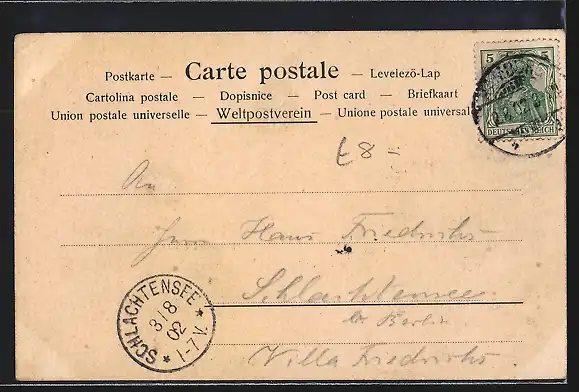 Postkarte — Carte postale — Levelező-Lap
Cartolina postale — Dopisnice — Post card — Briefkaart
Union postale universelle — Weltpostverein — Unione postale universal
5 5
DEUTSCHES REICH
An
Herrn Hans Friedrichs
Schlachtensee
bei Berlin
Villa Friedrichs
SCHLACHTENSEE
3/8
02
* 1-7V. *